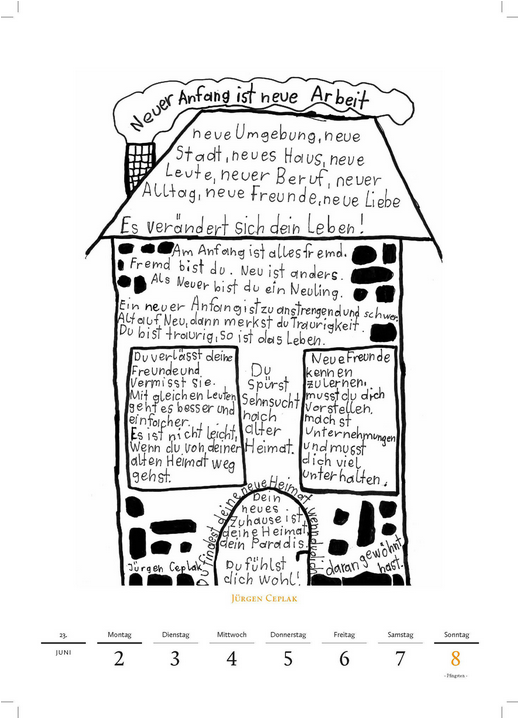 Neuer Anfang ist neue Arbeit
neue Umgebung, neue
Stadt, neues Haus, neue
Leute, neuer Beruf, neuer
Alltag, neue Freunde, neue Liebe
Es verändert sich dein Leben!
Am Anfang ist alles fremd.
Fremd bist du. Neu ist anders.
Als Neuer bist du ein Neuling.
Ein neuer Anfang ist zu anstrengend und schwer.
Alt auf Neu, dann merkst du Traurigkeit.
Du bist traurig, so ist das Leben.
Du verlässt deine
Freunde und
vermisst sie.
Mit gleichen Leuten
geht es besser und
einfacher.
Es ist nicht leicht,
wenn du von deiner
alten Heimat weg
gehst.
Du
spürst
Sehnsucht
nach
alter
Heimat.
Neue Freunde
kennen
zu lernen,
musst du dich
vorstellen,
machst
Unternehmungen
und musst
dich viel
unterhalten.
Du findest deine neue Heimat, wenn du dich
daran gewöhnt
hast.
Dein
neues
Zuhause ist
deine Heimat,
dein Paradis.
Du fühlst
dich wohl!
Jürgen Ceplak
Jürgen Ceplak
23.
JUNI
Montag
2
Dienstag
3
Mittwoch
4
Donnerstag
5
Freitag
6
Samstag
7
Sonntag
8
- Pfingsten -